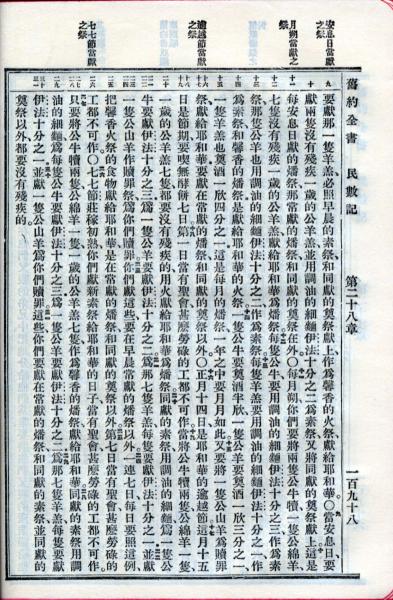 舊約全書 民數記 第二十八章 一百九十八
安息日當獻之祭
月朔當獻之祭
逾越節當獻之祭
七七節當獻之祭
要獻那一隻羊羔必照早晨的素祭和同獻的奠祭獻上作爲馨香的火祭獻給耶和華○當安息日要
獻兩隻沒有殘疾一歲的公羊羔並用調油的細麵伊法十分之二爲素祭又將同獻的奠祭獻上這是
每安息日獻的燔祭那常獻的燔祭和同獻的奠祭在外○每月朔你們要將兩隻公牛犢一隻公綿羊
七隻沒有殘疾一歲的公羊羔獻給耶和華爲燔祭每隻公牛要用調油的細麵伊法十分之三作爲素
祭那隻公羊也用調油的細麵伊法十分之二作爲素祭每隻羊羔要用調油的細麵伊法十分之一作
爲素祭和馨香的燔祭是獻給耶和華的火祭一隻公牛要奠酒半欣一隻公羊要奠酒一欣三分之一
一隻羊羔也奠酒一欣四分之一這是每月的燔祭一年之中要月月如此又要將一隻公山羊爲贖罪
祭獻給耶和華要獻在常獻的燔祭和同獻的奠祭以外○正月十四日是耶和華的逾越節這月十五
日是節期要喫無酵餅七日第一日當有聖會甚麼勞碌的工都不可作當將公牛犢兩隻公綿羊一隻
一歲的公羊羔七隻都要沒有殘疾的用火獻給耶和華爲燔祭同獻的素祭用調油的細麵爲一隻公
牛要獻伊法十分之三爲一隻公羊要獻伊法十分之二爲那七隻羊羔每隻要獻伊法十分之一並獻
一隻公山羊作贖罪祭爲你們贖罪你們獻這些要在早晨常獻的燔祭以外一連七日每日要照這例
把馨香火祭的食物獻給耶和華是在常獻的燔祭和同獻的奠祭以外第七日當有聖會甚麼勞碌的
工都不可作○七七節莊稼初熟你們獻新素祭給耶和華的日子當有聖會甚麼勞碌的工都不可作
只要將公牛犢兩隻公綿羊一隻一歲的公羊羔七隻作爲馨香的燔祭獻給耶和華同獻的素祭用調
油的細麵爲每隻公牛要獻伊法十分之三爲一隻公羊要獻伊法十分之二爲那七隻羊羔每隻要獻
伊法十分之一並獻一隻公山羊爲你們贖罪這些你們要獻在常獻的燔祭和同獻的素祭並同獻的
奠祭以外都要沒有殘疾的